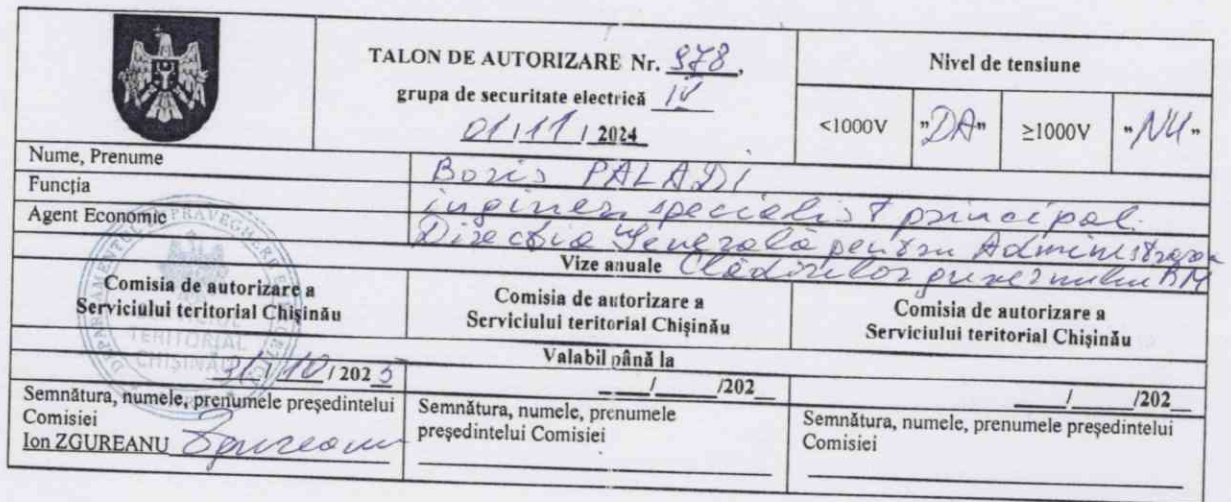 TALON DE AUTORIZARE Nr. 978,
grupa de securitate electrică IV
01/11/2024
Nivel de tensiune
<1000V "DA" ≥1000V "NU"
Nume, Prenume Boris PALADI
Funcția inginer specialist principal
Agent Economic Direcția Generală pentru Administrarea
Vize anuale Clădirilor guvernului RM
Comisia de autorizare a
Serviciului teritorial Chișinău
Comisia de autorizare a
Serviciului teritorial Chișinău
Comisia de autorizare a
Serviciului teritorial Chișinău
TERITORIAL
CHIȘINĂU
Valabil până la
31/10/2025
___/_____/202__
___/_____/202__
Semnătura, numele, prenumele președintelui
Comisiei
Ion ZGUREANU Zgureanu
Semnătura, numele, prenumele
președintelui Comisiei
Semnătura, numele, prenumele președintelui
Comisiei